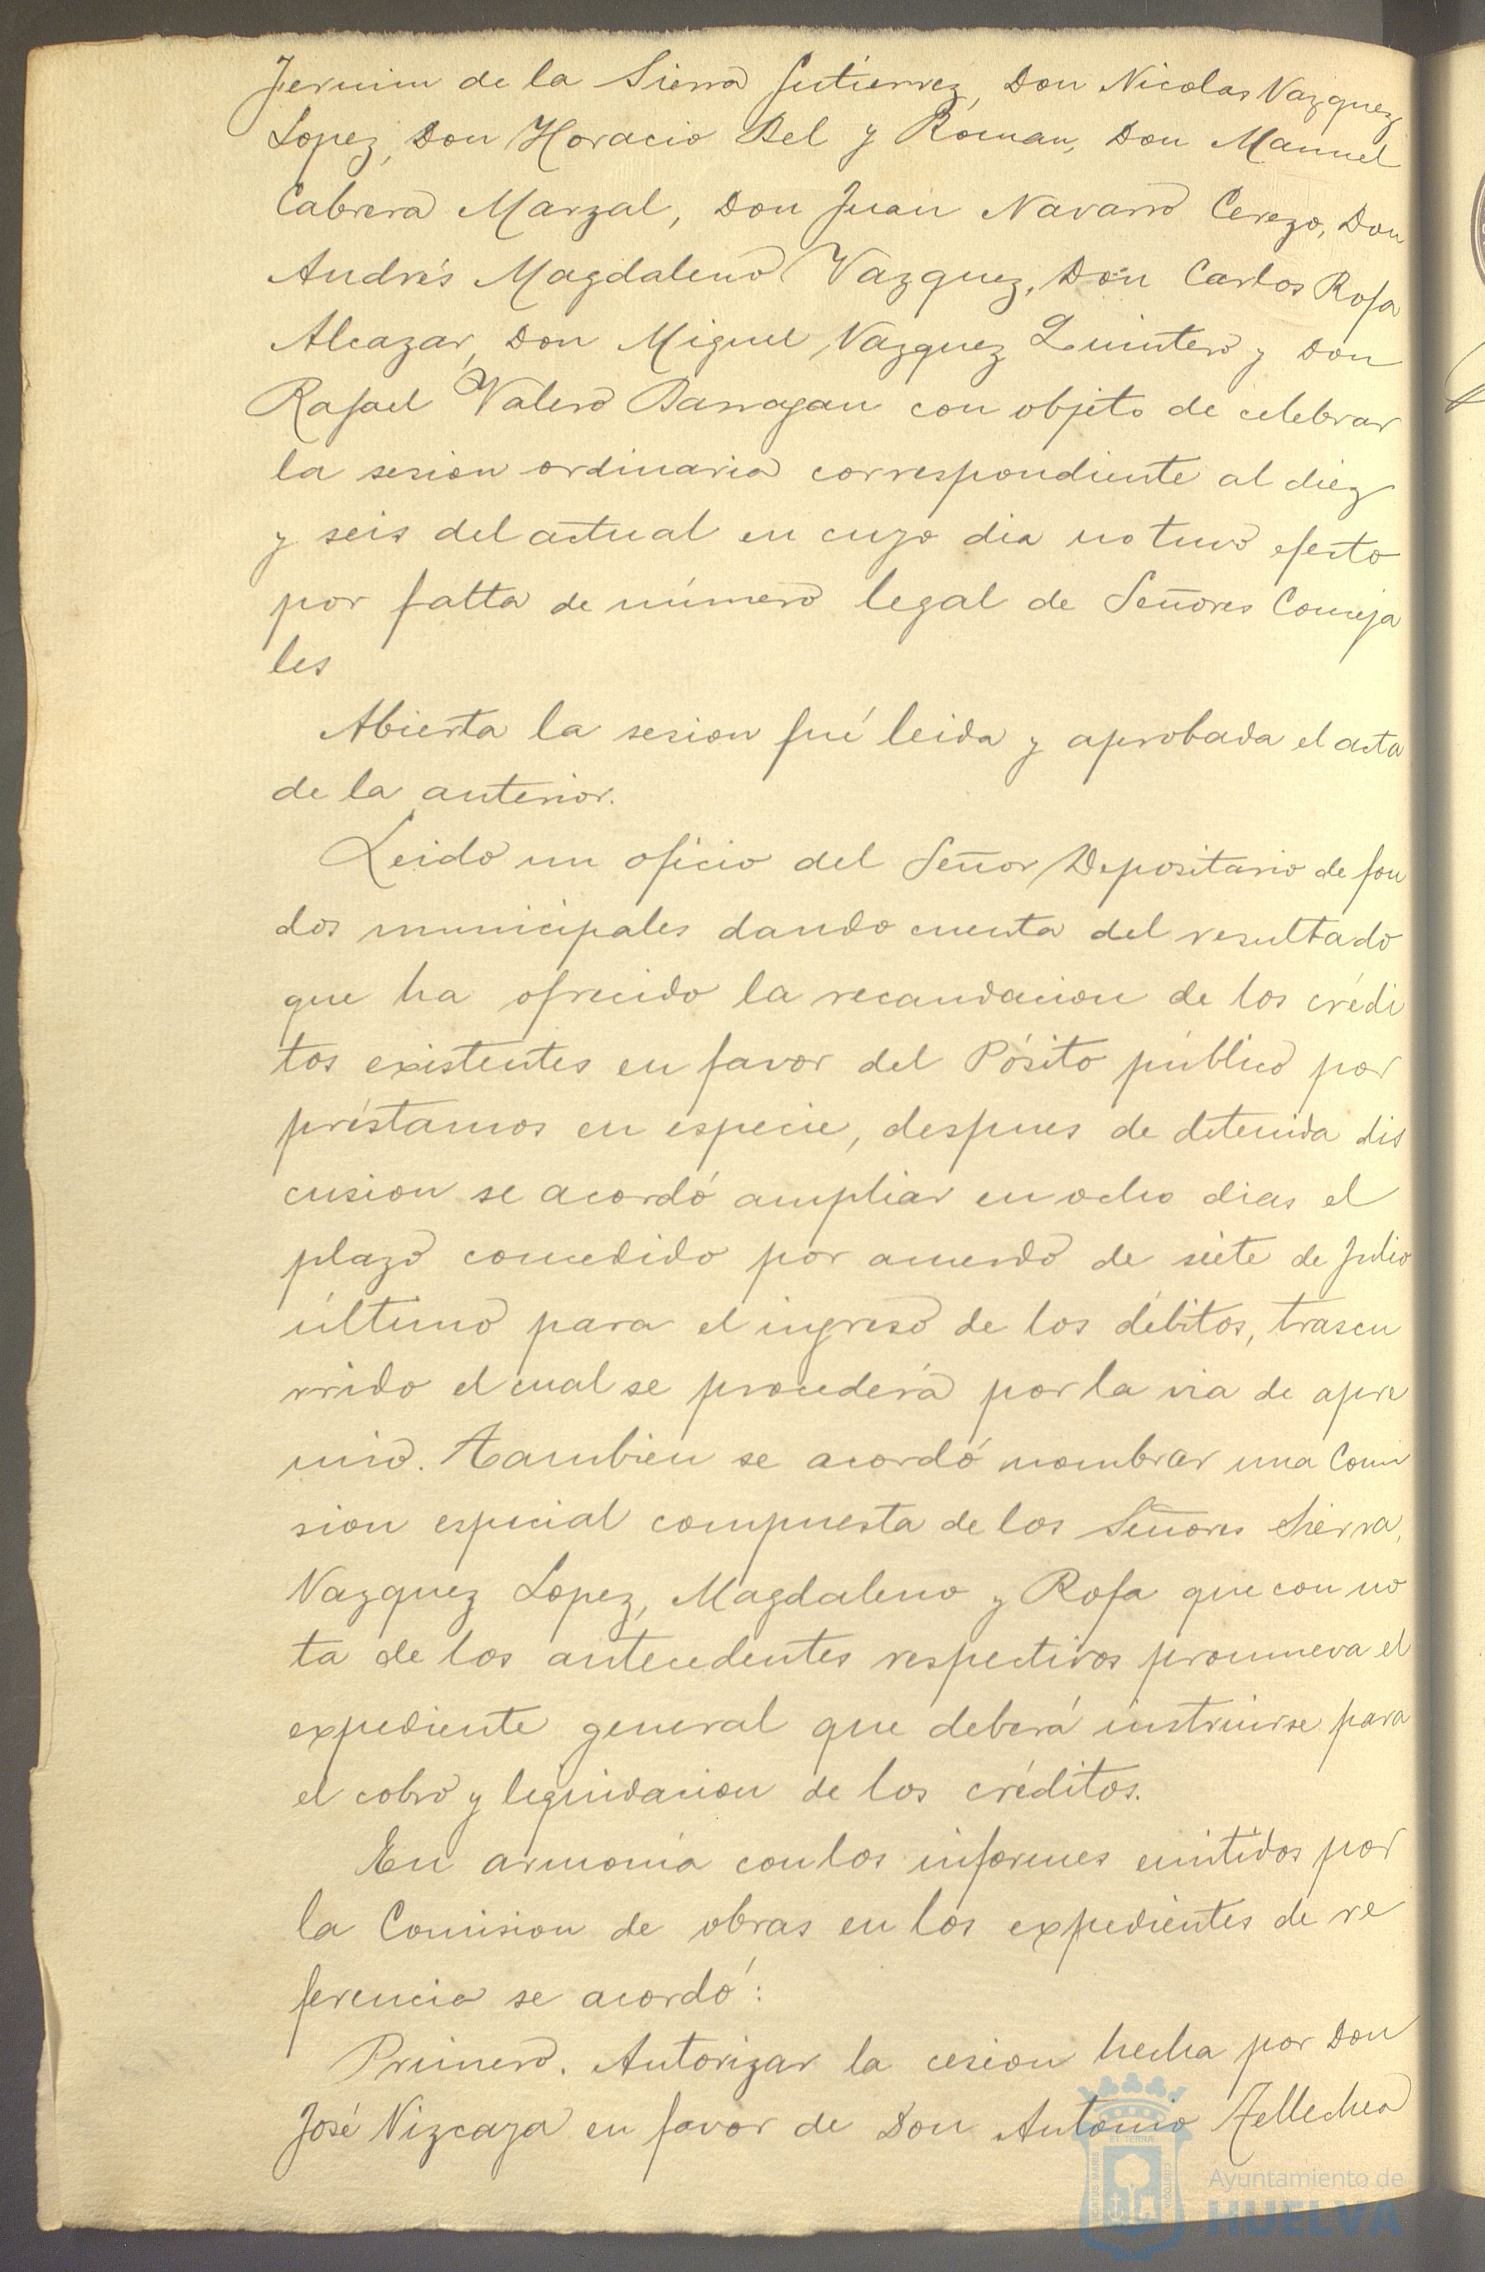 Fermin de la Sierra Gutierrez, Don Nicolas Vazquez
Lopez, Don Horacio Bel y Roman, Don Manuel
Cabrera Marzal, Don Juan Navarro Cerezo, Don
Andrés Magdaleno Vazquez, Don Carlos Rofa
Alcazar, Don Miguel Vazquez Quintero y Don
Rafael Valero Barragan con objeto de celebrar
la sesion ordinaria correspondiente al diez
y seis del actual en cuyo dia no tuvo efecto
por falta de número legal de Señores Conceja
les
Abierta la sesion fué leida y aprobada el acta
de la anterior.
Leido un oficio del Señor Depositario de fon
dos municipales dando cuenta del resultado
que ha ofrecido la recaudacion de los crédi
tos existentes en favor del Pósito público por
préstamos en especie, despues de detenida dis
cusion se acordó ampliar en ocho dias el
plazo concedido por acuerdo de siete de Julio
último para el ingreso de los débitos, trascu
rrido el cual se procederá por la via de apre
mio. Tambien se acordó nombrar una Comi
sion especial compuesta de los Señores Sierra,
Vazquez Lopez, Magdaleno y Rofa que con no
ta de los antecedentes respectivos promueva el
expediente general que deberá instruirse para
el cobro y liquidacion de los créditos.
En armonía con los informes emitidos por
la Comision de obras en los expedientes de re
ferencia se acordó:
Primero. Autorizar la cesion hecha por Don
José Vizcaya en favor de Don Antonio Tellechea
Ayuntamiento de
HUELVA